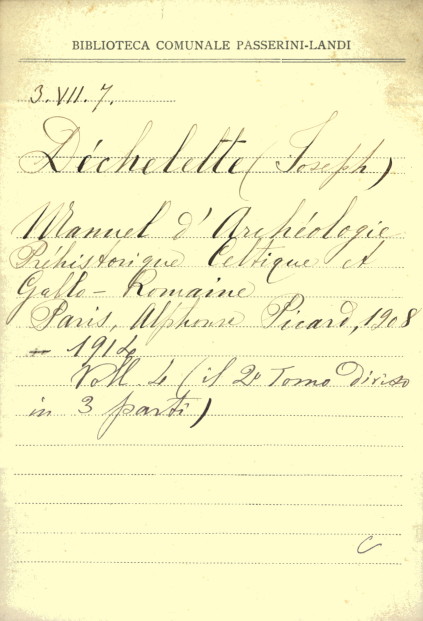 BIBLIOTECA COMUNALE PASSERINI-LANDI
3.VII.7.
Déchelette (Joseph)
Manuel d'Archéologie
Préhistorique Celtique et
Gallo-Romaine
Paris, Alphonse Picard, 1908
- 1914
Voll. 4 (il 2º Tomo diviso
in 3 parti)
C